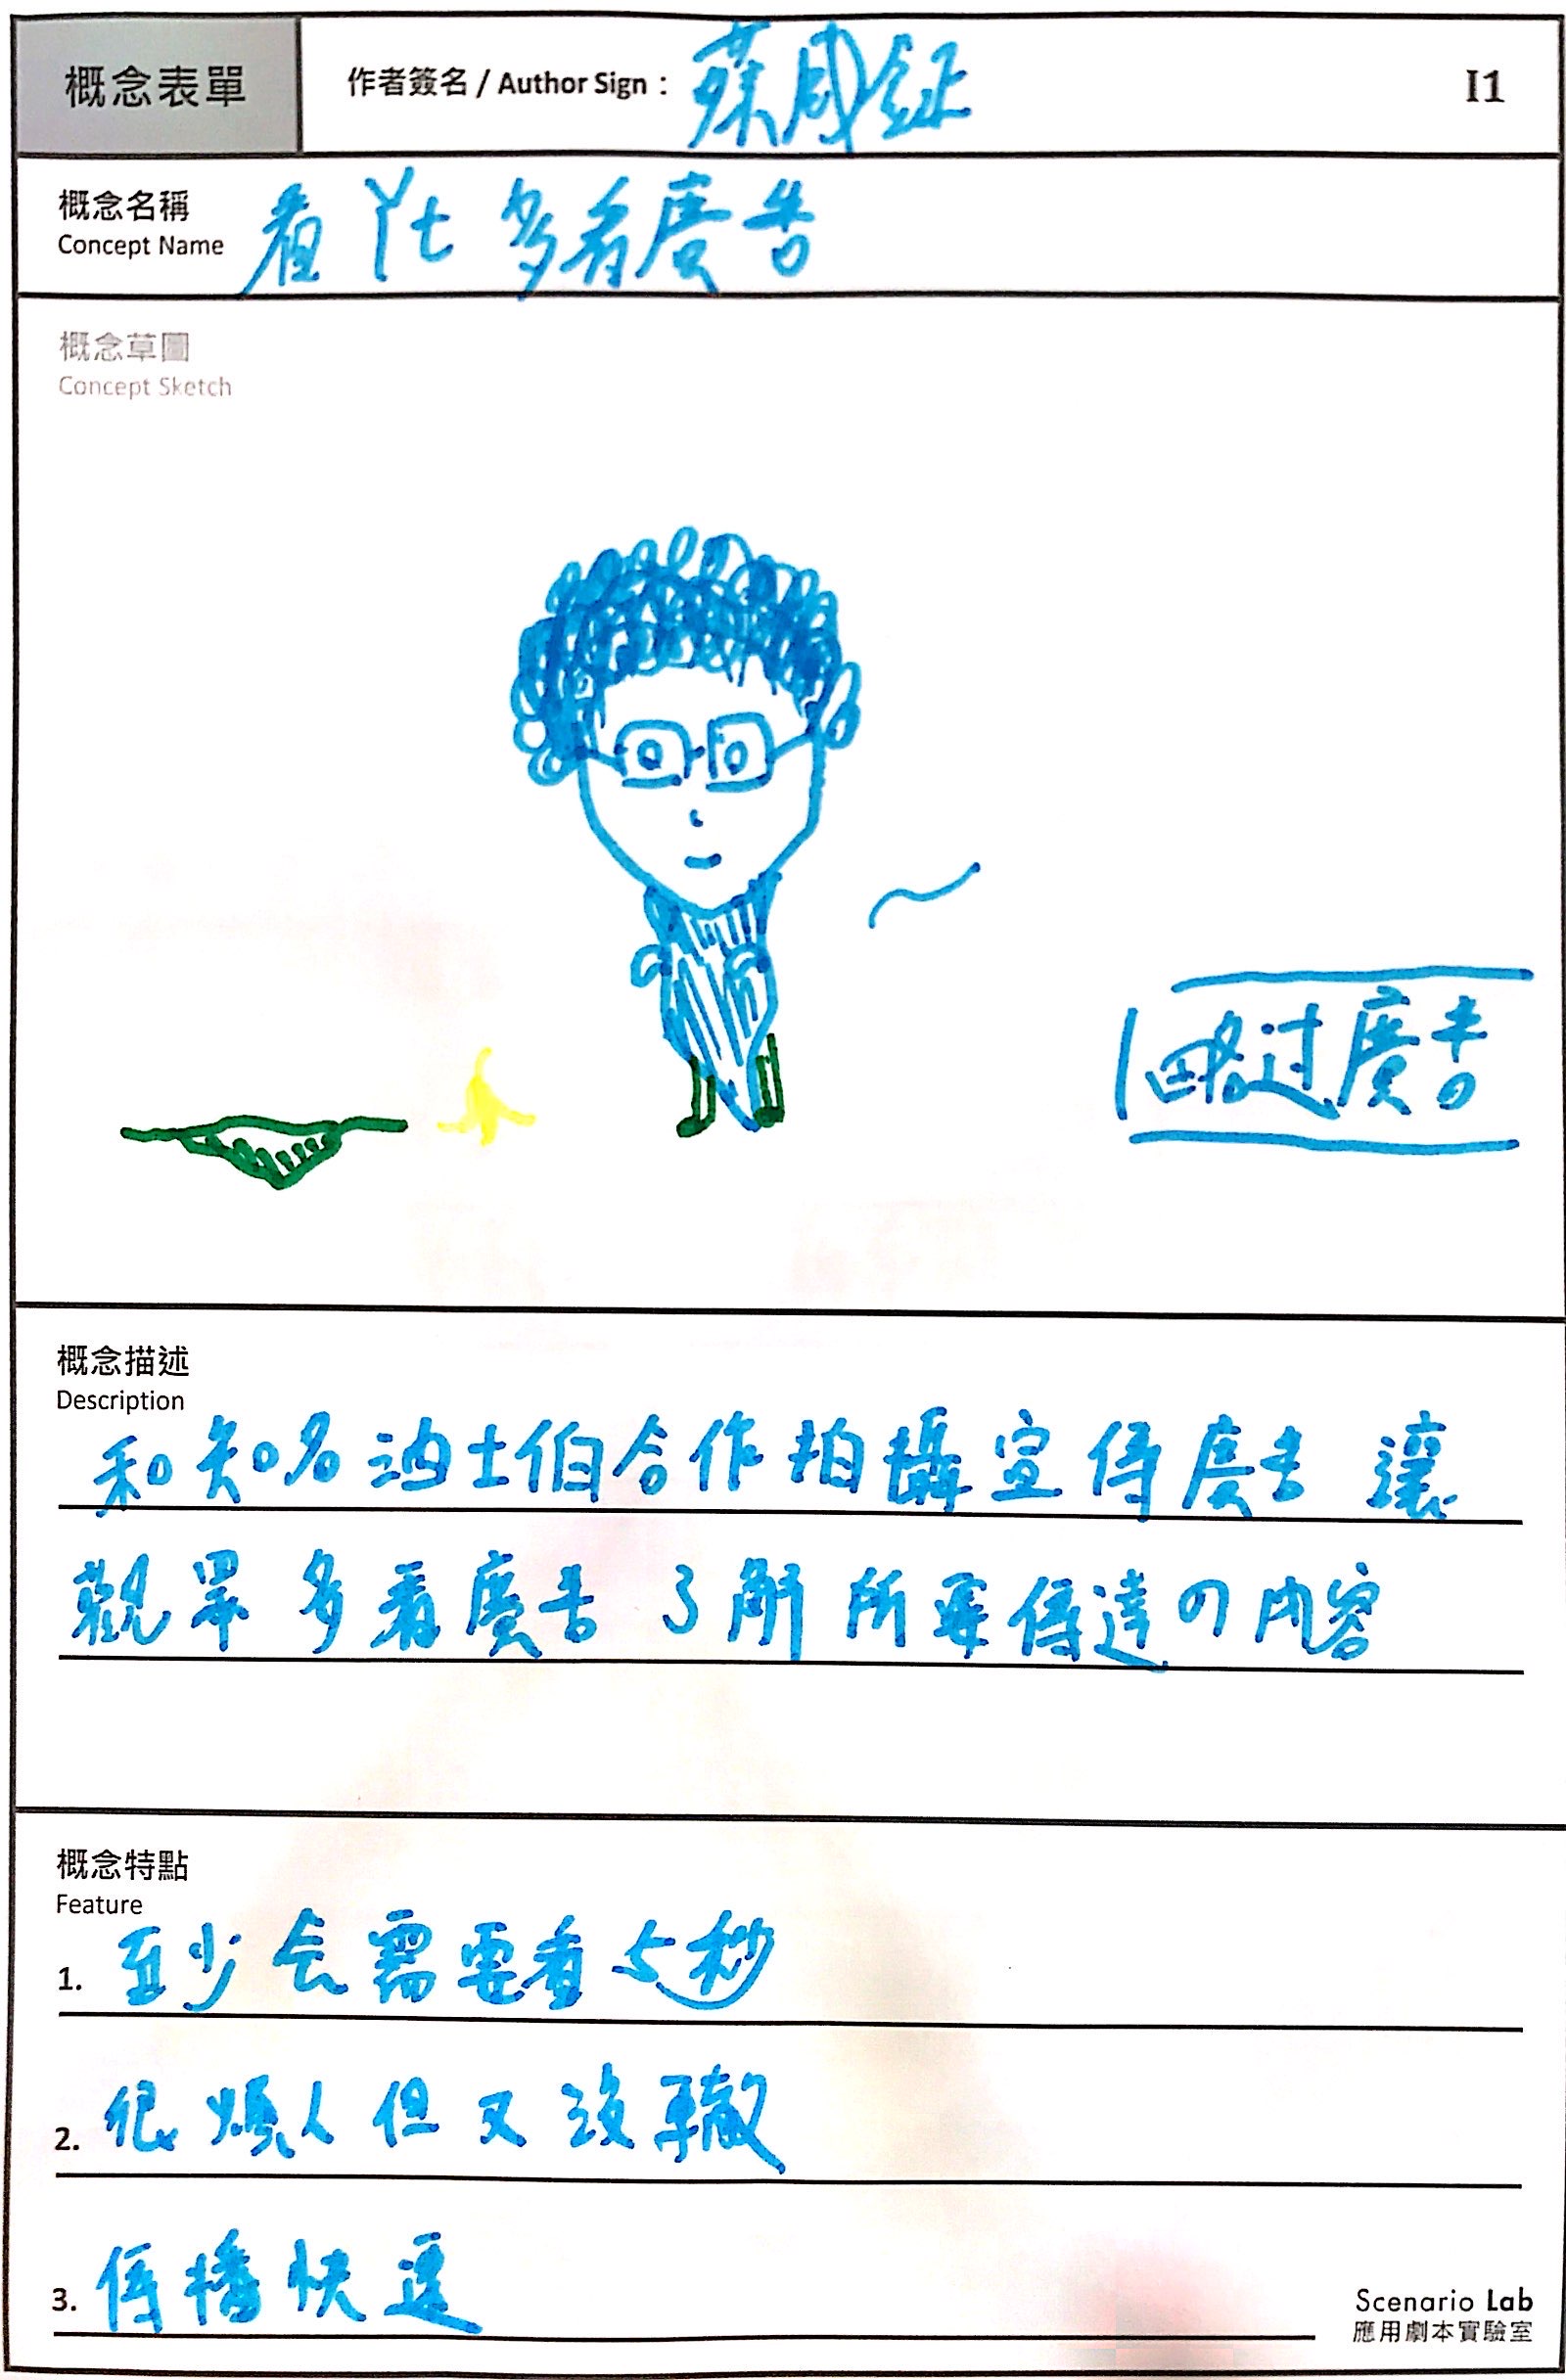 概念表單
作者簽名 / Author Sign：蘇
I1
概念名稱
Concept Name
看 Yt 多看廣告
概念草圖
Concept Sketch
略过廣告
概念描述
Description
和知名油土伯合作拍攝宣傳廣告 讓
觀眾多看廣告 了解所要傳達の内容
概念特點
Feature
1. 至少会需要看5秒
2. 很煩人但又沒轍
3. 傳播快速
Scenario Lab
應用劇本實驗室